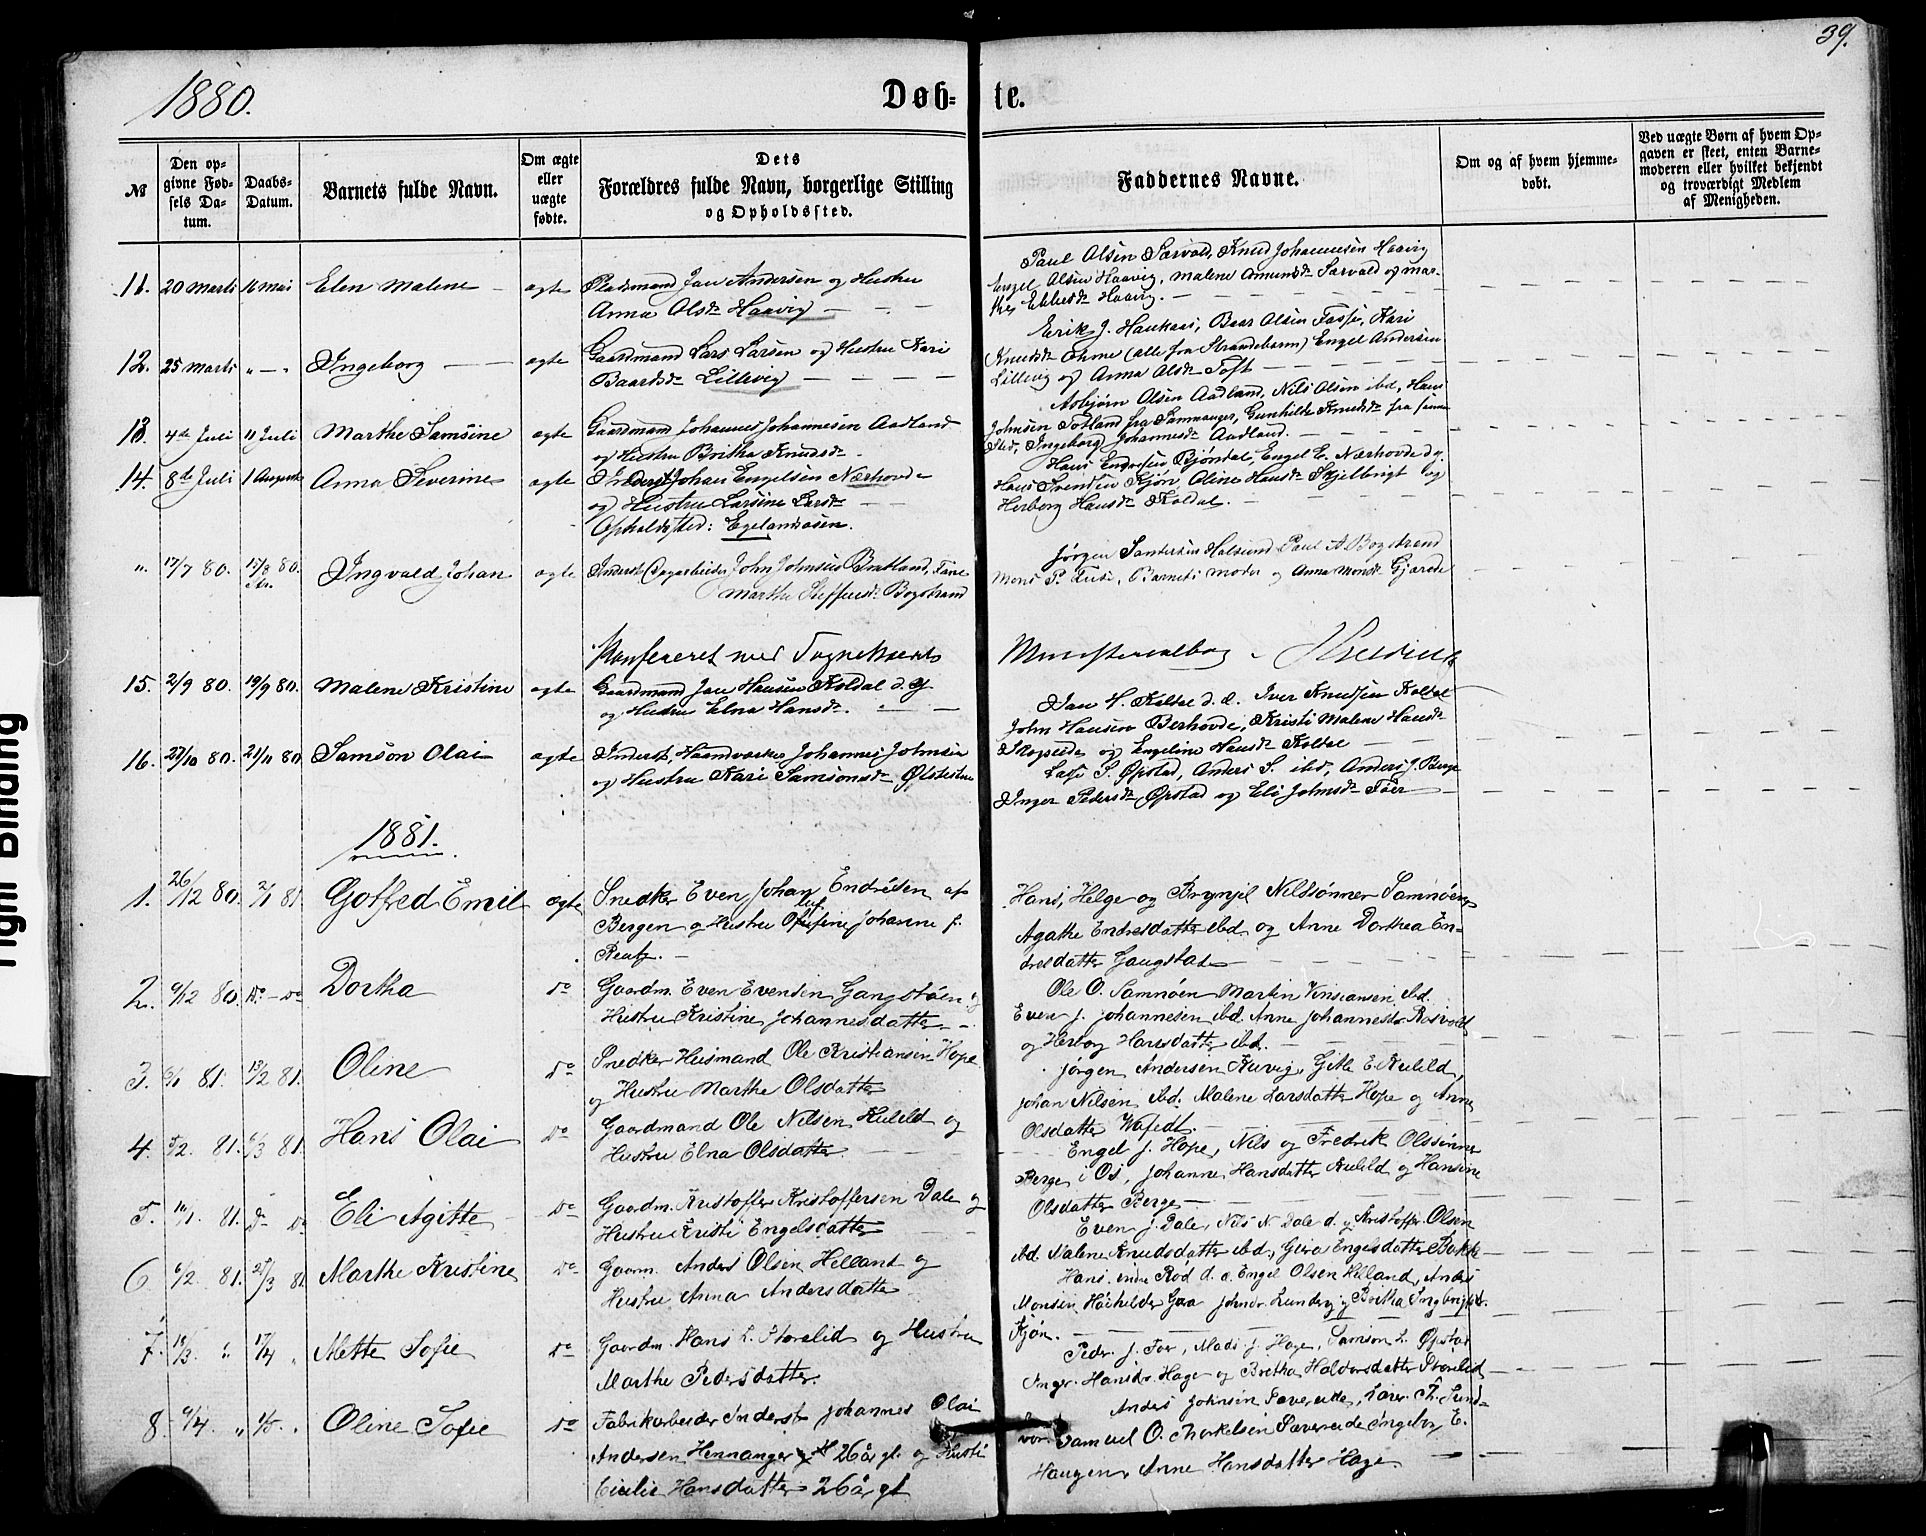 39.
1880.
Døb- te.
№
Den opgivne Fødsels Datum.
Daabs-Datum.
Barnets fulde Navn.
Om ægte eller uægte fødte.
Dets Forældres fulde Navn, borgerlige Stilling og Opholdssted.
Faddernes Navne.
Om og af hvem hjemmedøbt.
Ved uægte Børn af hvem Opgaven er skeet, enten Barnemoderen eller hvilket bekjendt og troværdigt Medlem af Menigheden.
Paul Olsen Sævold, Knud Johannesen Haavig
11. 20 Marts 16 Mai Elen Malene ægte Pladsmand Jan Andersen og Hustru
Engel Olsen Haavig, Malene Amundsdr Sævold og Mar-
Anna Olsdr Haavig
the Ebbesdr Haavig.
Erik J. Haukaas, Baar Olsen Fosse, Kari
12. 25 Marts " — " Ingeborg ægte Gaardmand Lars Larsen og Hustru Kari
Knudsdr Øhme (alle fra Strandebarm) Engel Andersen
Baardsdr Lillevig
Lillevig og Anna Olsdr Toft
Asbjørn Olsen Aadland, Nils Olsen ibd, Hans
13. 4de Juli 11 Juli Marthe Samsine ægte Gaardmand Johannes Johannesen Aadland
Johnsen Totland fra Sammanger, Gunhilde Knudsdr fra samme
og Hustru Britha Knudsdr
Sted, Ingeborg Johannesdr Aadland.
14. 8de Juli 1 August Anna Severine ægte Inderst Johan Engelsen Nærhovde
Hans Endresen Bjøndal, Engel E. Nærhovde d.y.
og Hustru Larsine Larsdr
Hans Svendsen Kjøn, Oline Hansdr Skjelbrigt og
Opholdssted: Egelandsosen.
Herborg Hansdr Koldal.
" 17/7 80. 15/8 80. Ingvald Johan ægte Inderst (Dagarbeider John Johnsen Bratland, Fane
Jørgen Sandersen Halsund Paul A. Bogstrand
Marthe Steffensdr Bogstrand
Mons P. Fuse, Barnets Moder og Anna Monsdr Gjærde
Konfereret med Sogneprestens Ministerialbog
15. 2/9 80. 19/9 80. Malene Kristine ægte Gaardmand Jan Hansen Koldal d. y
Jan H. Koldal d. æ. Iver Knudsen Koldal
og Hustru Elna Hansdr.
John Hansen Berhovde, Kristi Malene Hansdr
Skogseide og Engeline Hansdr Koldal
16. 27/10 80. 21/11 80 Samson Olai ægte Inderst, Haandværker Johannes Johnsen
Lasse S. Øpstad, Anders S. ibd, Anders J. Berge
og Hustru Kari Samsonsdr Ølshestnæ
Inger Pedersdr Øpstad og Eli Johnsdr Føer
1881.
1. 26/12 80. 2/1 81. Gotfred Emil ægte Snedker Even Johan Endresen af
Hans, Helge og Brynjel Nilssønner Samnøen
Bergen og Hustru Olufine Johanne f.
Agathe Endresdatter ibd og Anne Dorthea En-
Rentz.
dresdatter Gaugstad
2. 6/12 80. Do - Do Dortha Do Gaardm. Even Evensen Gangstøen og
Ole O. Samnøen Martin Kristiansen, ibd.
Hustru Kristine Johannesdatter
Even J. Johannesen ibd. Anne Johannesdr Rosvold
og Herbog Hansdatter ibd.
3. 6/1 81. 13/2 81. Oline Do Snedker Husmand Ole Kristiansen Hope
Jørgen Andersen Kuvig, Gitle E. Kuleld,
og Hustru Marthe Olsdatter
Johan Nilsen ibd. Malene Larsdatter Hope og Anne
Olsdatter
4. 5/2. 81. 6/3 81. Hans Olai Do Gaardmand Ole Nilsen Kuleld og
Engel J. Hope, Nils og Fredrik Olssønner
Hustru Elna Olsdatter
Berge i Os, Johanne Hansdatter Kuleld og Hansine
Olsdatter Berge
5. 10/1. 81. Do Do Eli Agitte Do Gaardm. Kristoffer Kristoffersen Dale og
Even J. Dale, Nils N. Dale d. y Kristoffer Olsen
Hustru Kristi Engelsdatter
ibd. Malene Knudsdatter ibd., Guro Engelsdatter Bakke
6. 6/2 81. 27/3 81. Marthe Kristine Do Gaarm. Anders Olsen Helland og
Hans indre Rød d. æ. Engel Olsen Helland, Anders
Hustru Anna Andersdatter
Monsen Haahilder Gaa Johndr. Lunderv. og Britha Ingbrigtsdr.
Kjøn.
7. 18/3 " 17/4 " Mette Sofie Do Gaardm. Hans L. Storelid og Hustru
Peder J. Foer, Mads J. Hage, Samson L. Øpstad
Marthe Pedersdatter.
Inger Hansdr. Hage og Brethe Haldorsdatter Storelid
8. 6/4 " 1/5 " Oline Sofie Do Fabrikarbeider Inderst Johannes Olai
Anders Johnsen Sævereide, Lars Th. Sund-
vor. Samuel O. Thorkelsen Sævereide Ingebog E.
Andersen Hennanger 26 år gl. og Hustru
Haugen, Anne Hansdatter Hage
Cicilie Hansdatter 26 år gl
Tight Binding